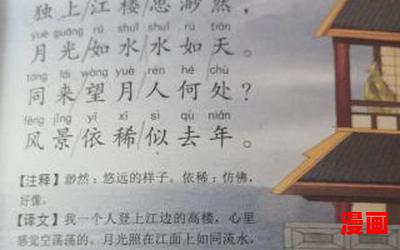 独上/江楼/思渺然，
yuè guāng rú shuǐ shuǐ rú tiān
月光/如水/水如/天。
tóng lái wàng yuè rén hé chù
同来/望月/人何/处？
fēng jǐng yī xī sì qù nián
风景/依稀/似去/年。
【注释】渺然：悠远的样子。依稀：仿佛，
好像。
【译文】我一个人登上江边的高楼，心里
感觉空荡荡的。月光照在江面上如同流水，
漫画